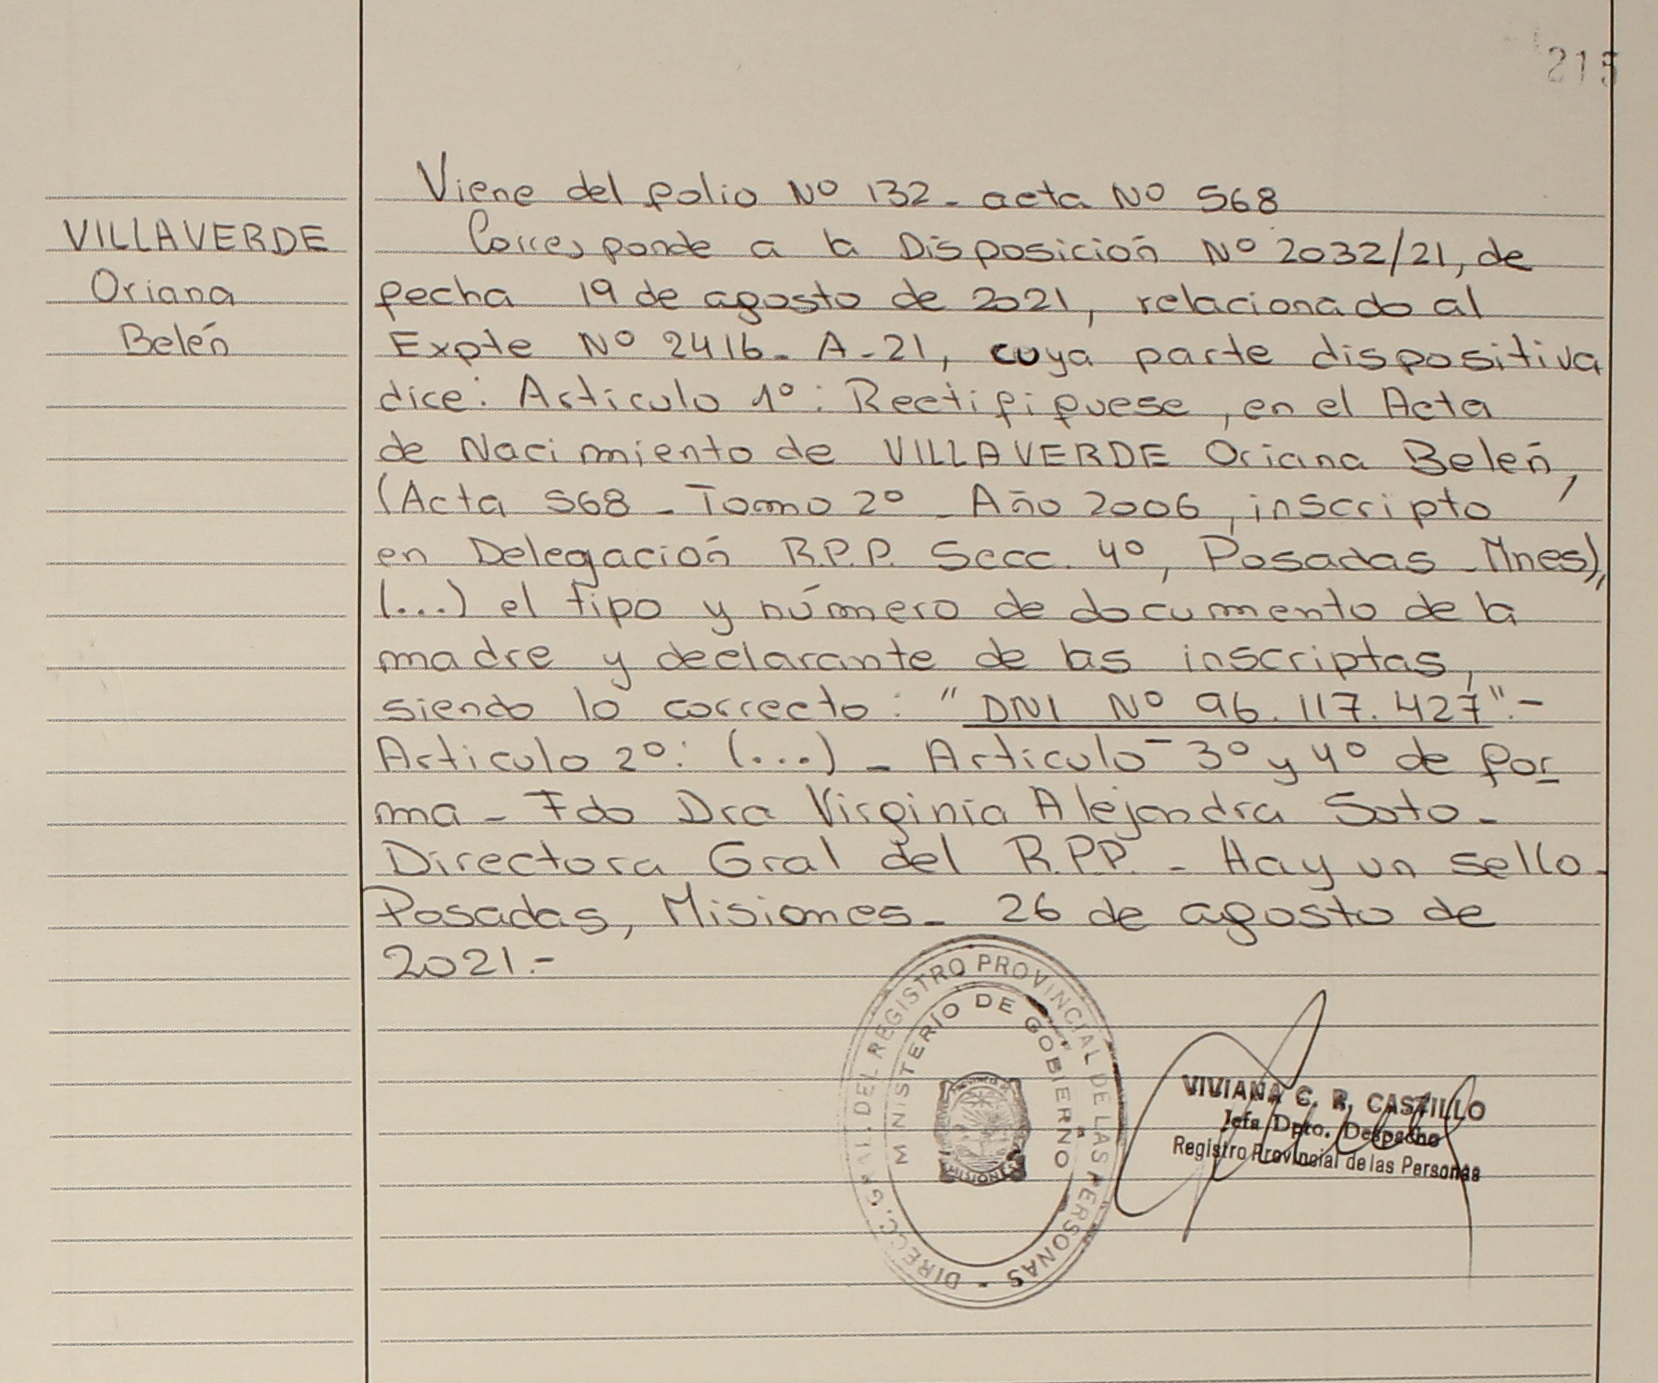 215
VILLAVERDE
Oriana
Belén
Viene del folio Nº 132 - acta Nº 568
Corresponde a la Disposición Nº 2032/21, de
fecha 19 de agosto de 2021, relacionado al
Expte Nº 2416 - A - 21, cuya parte dispositiva
dice: Articulo 1º: Rectifiquese, en el Acta
de Nacimiento de VILLAVERDE Oriana Belén,
(Acta 568 - Tomo 2º - Año 2006, inscripto
en Delegación R.P.P. Secc. 4º, Posadas - Mnes),
(...) el tipo y número de documento de la
madre y declarante de las inscriptas,
siendo lo correcto: "DNI Nº 96.117.427".-
Articulo 2º: (...) - Articulo 3º y 4º de for
ma - Fdo Dra Virginia Alejandra Soto -
Directora Gral del R.P.P. - Hay un sello -
Posadas, Misiones - 26 de agosto de
2021.-
DIRECC. GRAL. DEL REGISTRO PROVINCIAL DE LAS PERSONAS -
MINISTERIO DE GOBIERNO
MISIONES
VIVIANA C. R. CASTILLO
Jefa Dpto. Despacho
Registro Provincial de las Personas